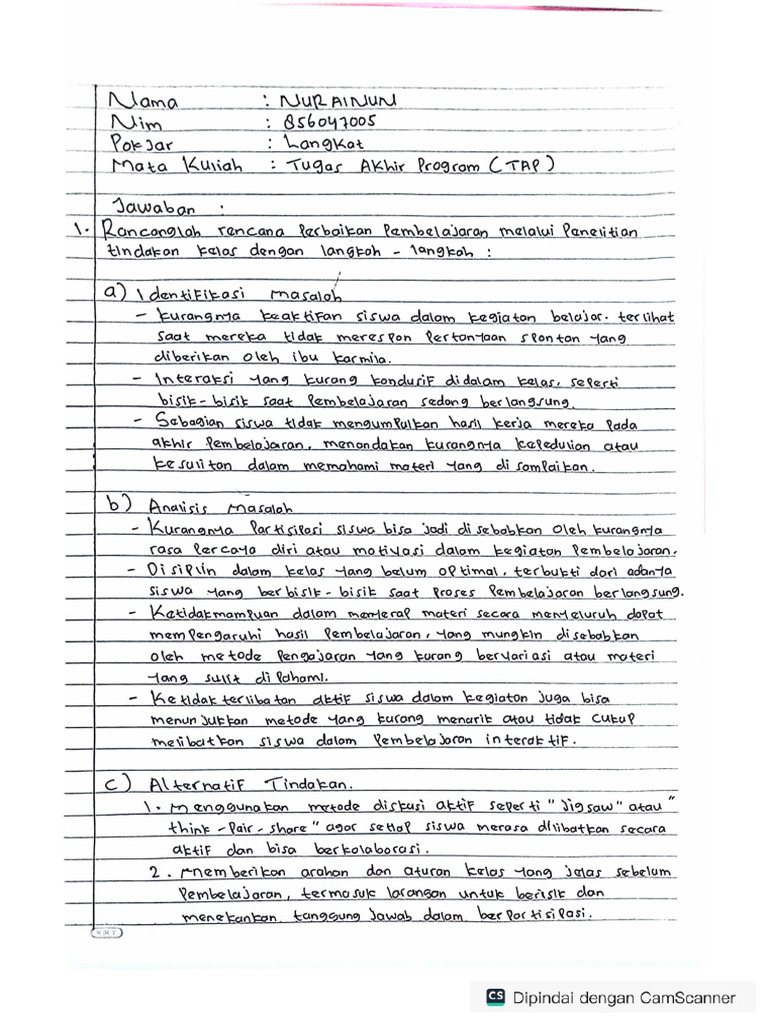 Nama : NURAINUN
Nim : 856047005
Pokjar : Langkat
Mata Kuliah : Tugas Akhir Program (TAP)
Jawaban :
1. Rancanglah rencana Perbaikan Pembelajaran melalui Penelitian
tindakan kelas dengan langkah - langkah :
a) Identifikasi masalah
- Kurangnya keaktifan siswa dalam kegiatan belajar. terlihat
saat mereka tidak merespon Pertanyaan spontan yang
diberikan oleh ibu karmila.
- Interaksi yang kurang kondusif didalam kelas, seperti
bisik-bisik saat Pembelajaran sedang berlangsung.
- Sebagian siswa tidak mengumpulkan hasil kerja mereka pada
akhir Pembelajaran, menandakan kurangnya kepedulian atau
kesulitan dalam memahami materi yang di sampaikan.
b) Analisis Masalah
- Kurangnya Partisipasi siswa bisa jadi di sebabkan oleh kurangnya
rasa Percaya diri atau motivasi dalam kegiatan Pembelajaran.
- Disiplin dalam kelas yang belum optimal, terbukti dari adanya
siswa yang berbisik-bisik saat Proses Pembelajaran berlangsung.
- Ketidakmampuan dalam menyerap materi secara menyeluruh dapat
mempengaruhi hasil Pembelajaran, yang mungkin disebabkan
oleh metode Pengajaran yang kurang bervariasi atau materi
yang sulit di Pahami.
- Ketidak terlibatan aktif siswa dalam kegiatan juga bisa
menunjukkan metode yang kurang menarik atau tidak cukup
melibatkan siswa dalam Pembelajaran interaktif.
c) Alternatif Tindakan.
1. Menggunakan metode diskusi aktif seperti "Jigsaw" atau "
think-Pair-share" agar setiap siswa merasa dilibatkan secara
aktif dan bisa berkolaborasi.
2. Memberikan arahan dan aturan kelas yang jelas sebelum
Pembelajaran, termasuk larangan untuk berisik dan
menekankan tanggung jawab dalam berpartisipasi.
KKY
CS Dipindai dengan CamScanner